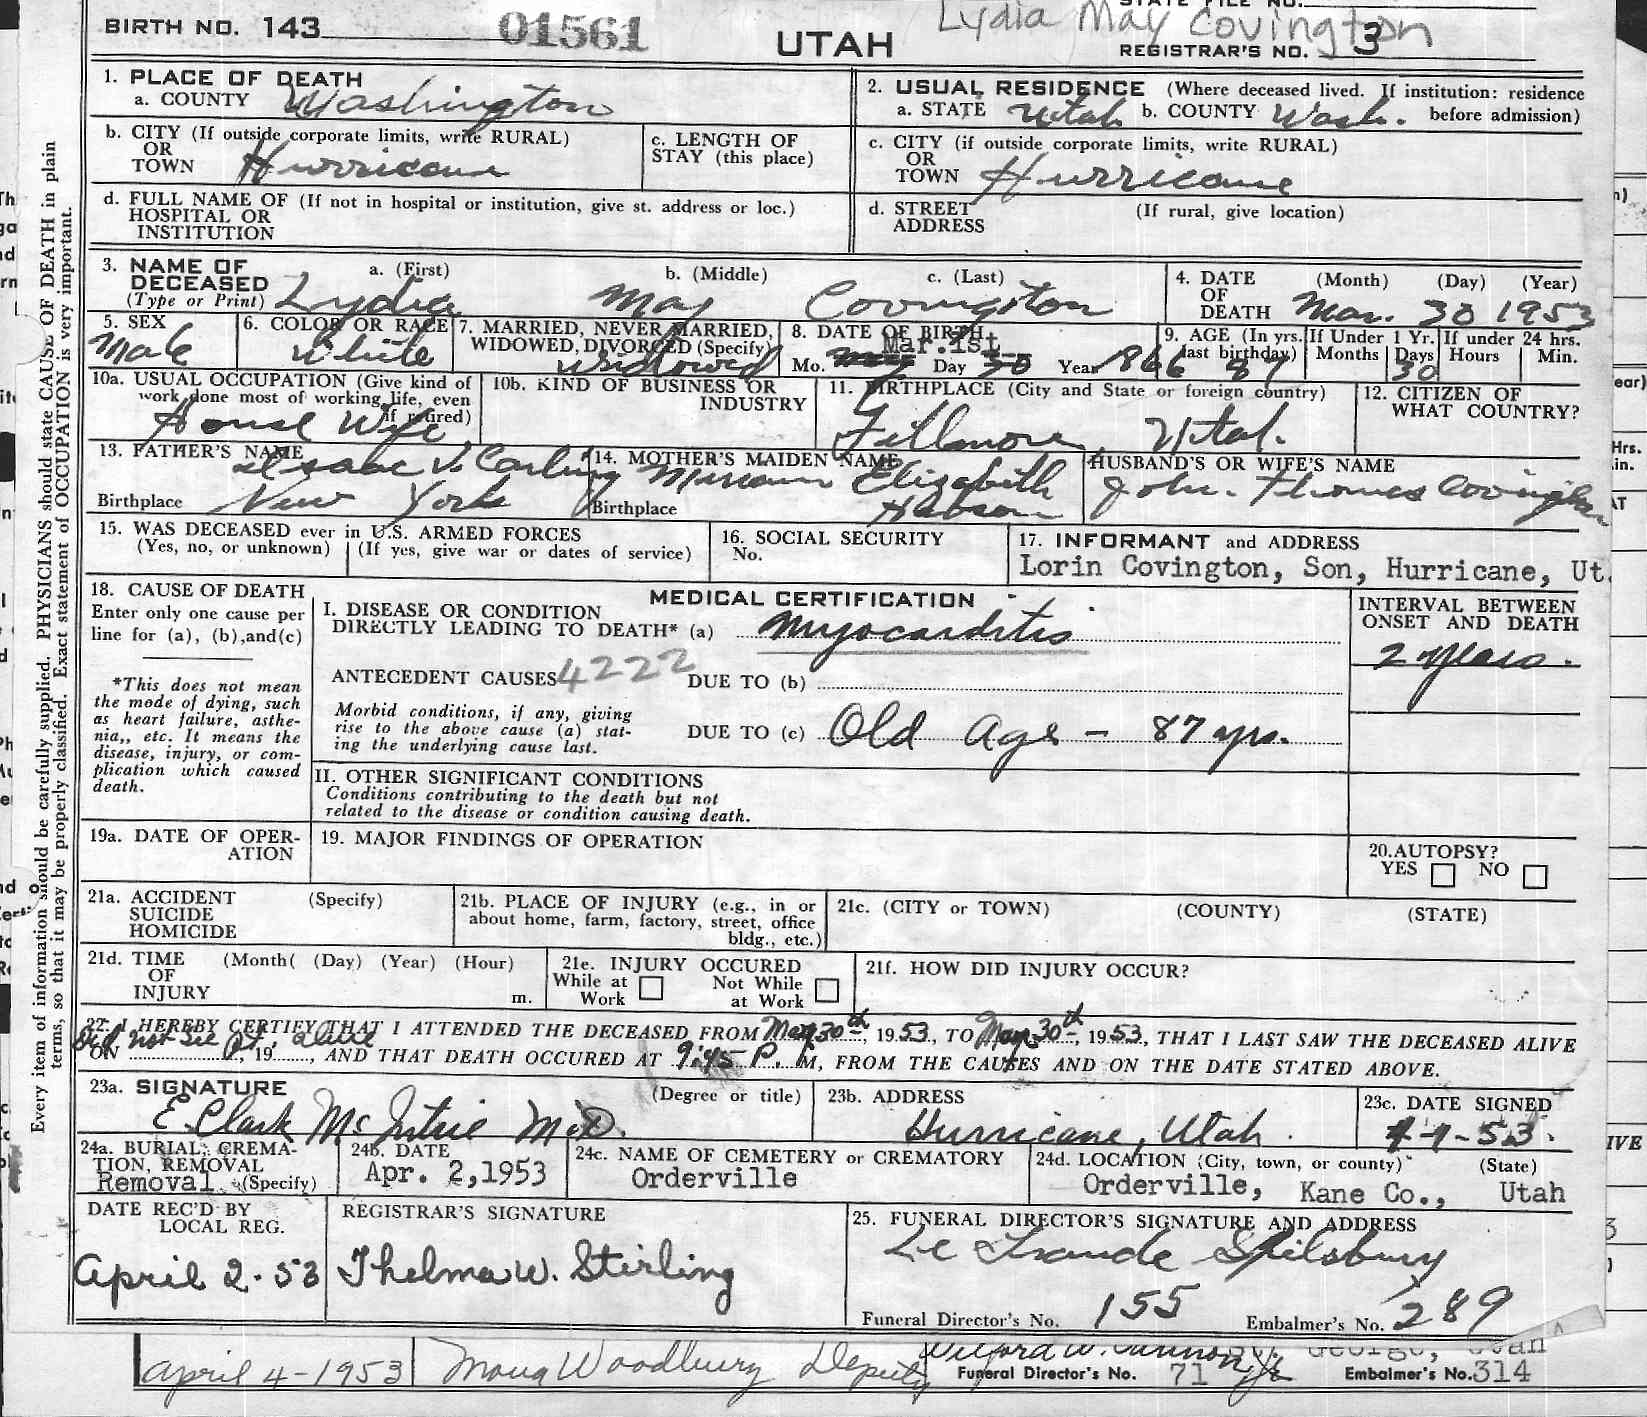 STATE FILE NO.
Lydia May Covington
BIRTH NO. 143 01561
UTAH
REGISTRAR'S NO. 3
1. PLACE OF DEATH
a. COUNTY Washington
2. USUAL RESIDENCE (Where deceased lived. If institution: residence
a. STATE Utah b. COUNTY Wash. before admission)
b. CITY (If outside corporate limits, write RURAL)
OR
TOWN Hurricane
c. LENGTH OF
STAY (this place)
c. CITY (if outside corporate limits, write RURAL)
OR
TOWN Hurricane
d. FULL NAME OF (If not in hospital or institution, give st. address or loc.)
HOSPITAL OR
INSTITUTION
d. STREET (If rural, give location)
ADDRESS
3. NAME OF DECEASED
(Type or Print)
a. (First) b. (Middle) c. (Last)
Lydia May Covington
4. DATE OF DEATH
(Month) (Day) (Year)
Mar. 30 1953
5. SEX
Male
6. COLOR OR RACE
White
7. MARRIED, NEVER MARRIED,
WIDOWED, DIVORCED (Specify)
Widowed
8. DATE OF BIRTH
Mar.1st
Mo. Day 30 Year 1866
9. AGE (In yrs.
last birthday)
87
If Under 1 Yr.
Months Days
30
If under 24 hrs.
Hours Min.
10a. USUAL OCCUPATION (Give kind of
work done most of working life, even
if retired)
House Wife
10b. KIND OF BUSINESS OR
INDUSTRY
11. BIRTHPLACE (City and State or foreign country)
Fillmore, Utah.
12. CITIZEN OF
WHAT COUNTRY?
13. FATHER'S NAME
Isaac V. Carling
Birthplace New York
14. MOTHER'S MAIDEN NAME
Elizabeth
Birthplace
HUSBAND'S OR WIFE'S NAME
John Thomas Covington
15. WAS DECEASED ever in U.S. ARMED FORCES
(Yes, no, or unknown) (If yes, give war or dates of service)
16. SOCIAL SECURITY
No.
17. INFORMANT and ADDRESS
Lorin Covington, Son, Hurricane, Ut.
18. CAUSE OF DEATH
Enter only one cause per
line for (a), (b), and (c)
*This does not mean
the mode of dying, such
as heart failure, asthe-
nia,, etc. It means the
disease, injury, or com-
plication which caused
death.
MEDICAL CERTIFICATION
I. DISEASE OR CONDITION
DIRECTLY LEADING TO DEATH* (a) Myocarditis
ANTECEDENT CAUSES 4222 DUE TO (b)
Morbid conditions, if any, giving
rise to the above cause (a) stat-
ing the underlying cause last.
DUE TO (c) Old Age - 87 yrs.
INTERVAL BETWEEN
ONSET AND DEATH
2 years.
II. OTHER SIGNIFICANT CONDITIONS
Conditions contributing to the death but not
related to the disease or condition causing death.
19a. DATE OF OPER-
ATION
19. MAJOR FINDINGS OF OPERATION
20.AUTOPSY?
YES NO
21a. ACCIDENT (Specify)
SUICIDE
HOMICIDE
21b. PLACE OF INJURY (e.g., in or
about home, farm, factory, street, office
bldg., etc.)
21c. (CITY or TOWN) (COUNTY) (STATE)
21d. TIME (Month( (Day) (Year) (Hour)
OF
INJURY m.
21e. INJURY OCCURED
While at Work
Not While at Work
21f. HOW DID INJURY OCCUR?
22. I HEREBY CERTIFY THAT I ATTENDED THE DECEASED FROM Mar 30th, 1953, TO Mar 30th, 1953, THAT I LAST SAW THE DECEASED ALIVE
Did not see Pt. alive
ON , 19 , AND THAT DEATH OCCURED AT 9:45 P. M, FROM THE CAUSES AND ON THE DATE STATED ABOVE.
23a. SIGNATURE (Degree or title)
E. Clark McIntire M.D.
23b. ADDRESS
Hurricane, Utah.
23c. DATE SIGNED
4-1-53.
24a. BURIAL, CREMA-
TION, REMOVAL
Removal (Specify)
24b. DATE
Apr. 2,1953
24c. NAME OF CEMETERY or CREMATORY
Orderville
24d. LOCATION (City, town, or county) (State)
Orderville, Kane Co., Utah
DATE REC'D BY
LOCAL REG.
April 2-53
REGISTRAR'S SIGNATURE
Thelma W. Stirling
25. FUNERAL DIRECTOR'S SIGNATURE AND ADDRESS
Spilsbury
Funeral Director's No. 155 Embalmer's No. 289
April 4-1953 Woodbury Deputy
George, Utah
Funeral Director's No. 71 Embalmer's No. 314
Every item of information should be carefully supplied. PHYSICIANS should state CAUSE OF DEATH in plain
terms, so that it may be properly classified. Exact statement of OCCUPATION is very important.